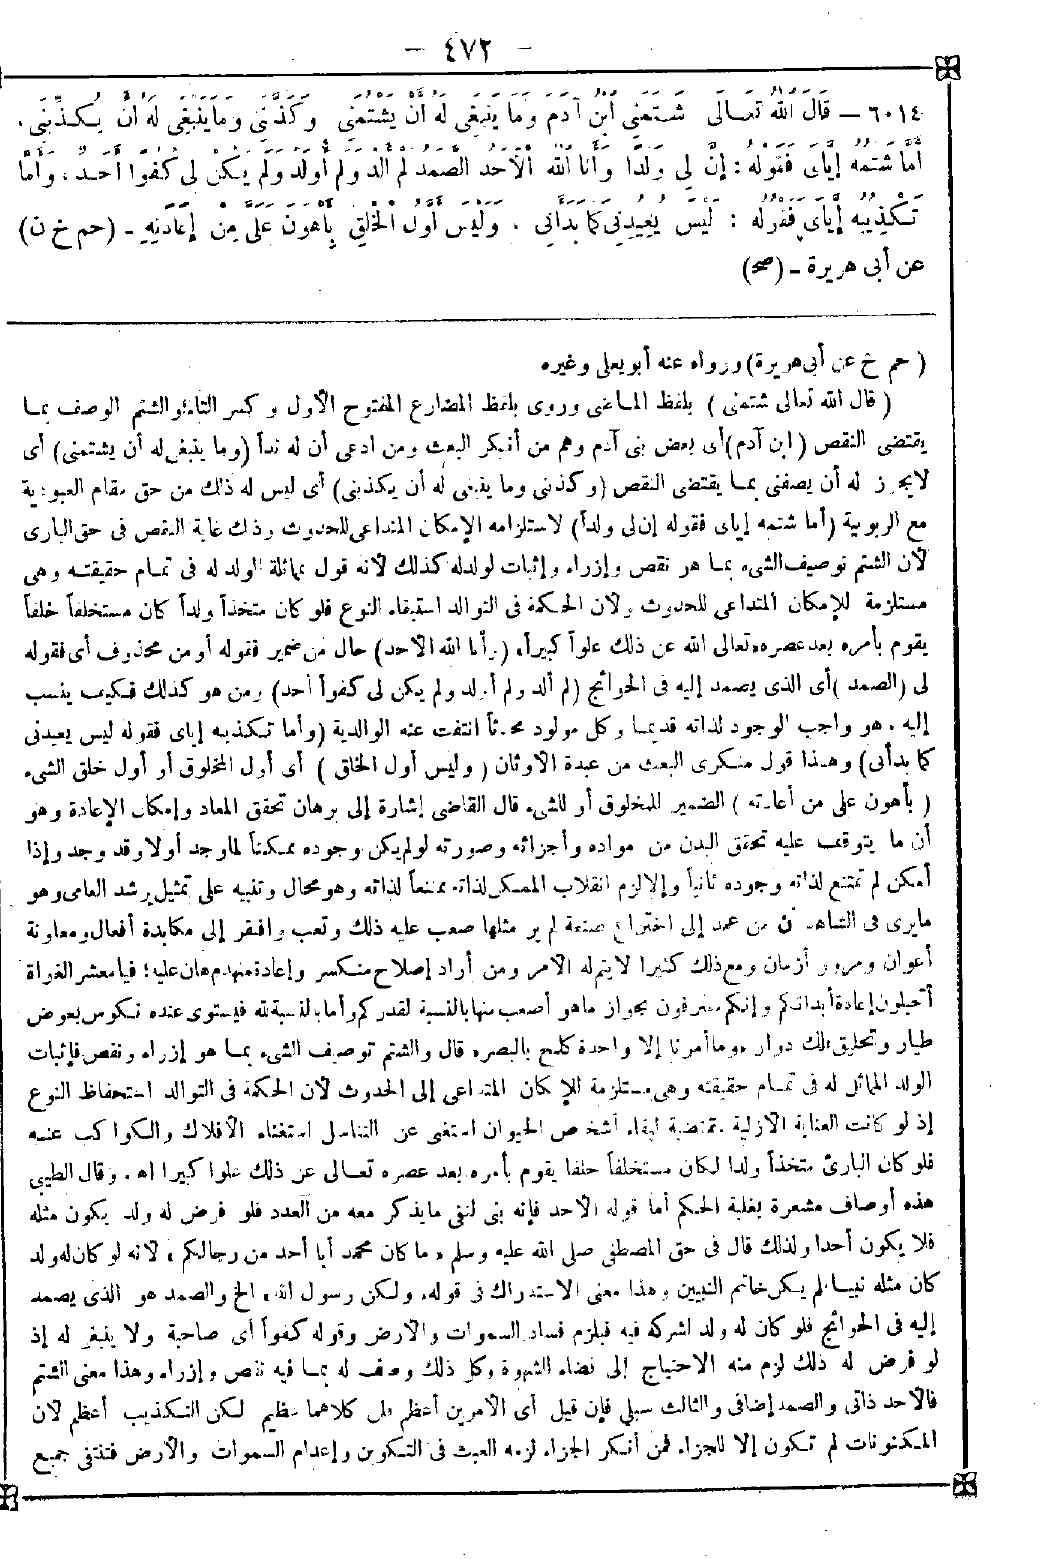 – ٤٧٢ –
٦٠١٤ – قَالَ اللهُ تَعَالَى شَتَمَنِى ابْنُ آدَمَ وَمَا يَنْبَغِى لَهُ أَنْ يَشْتُمَنِى وَكَذَّبَنِى وَمَا يَنْبَغِى لَهُ أَنْ يُكَذِّبَنِى،
أَمَّا شَتْمُهُ إِيَّاىَ فَقَوْلُهُ : إِنَّ لِى وَلَدًا وَأَنَا اللهُ الْأَحَدُ الصَّمَدُ لَمْ أَلِدْ وَلَمْ أُولَدْ وَلَمْ يَكُنْ لِى كُفُوًا أَحَدٌ، وَأَمَّا
تَكْذِيبُهُ إِيَّاىَ فَقَوْلُهُ : لَيْسَ يُعِيدُنِى كَمَا بَدَأَنِى ، وَلَيْسَ أَوَّلُ الْخَلْقِ بِأَهْوَنَ عَلَىَّ مِنْ إِعَادَتِهِ – (حم خ ن)
عن أبى هريرة – (صح)
( حم خ عن أبى هريرة) ورواه عنه أبو يعلى وغيره
( قال الله تعالى شتمنى ) بلفظ الماضى وروى بلفظ المضارع المفتوح الأول وكسر الثاء والشتم الوصف بما
يقتضى النقص (ابن آدم) أى بعض بنى آدم وهم من أنكر البعث ومن ادعى أن له ندأ (وما ينبغى له أن يشتمنى) أى
لايجوز له أن يصفنى بما يقتضى النقص (وكذبنى وما ينبغى له أن يكذبنى) أى ليس له ذلك من حق مقام العبودية
مع الربوبية (أما شتمه إياى فقوله إن لى ولداً) لاستلزامه الإمكان المتداعى للحدوث وذلك غاية النقص فى حق البارى
لأن الشتم توصيف الشىء بما هو نقص وإزراء وإثبات لولد له كذلك لأنه قول بمماثلة الولد له فى تمام حقيقته وهى
مستلزمة للإمكان المتداعى للحدوث ولأن الحكمة فى التوالد استبقاء النوع فلو كان متخذاً ولداً كان مستخلفاً خلفاً
يقوم بأمره بعد عصره، تعالى الله عن ذلك علواً كبيراً، (وأنا الله الأحد) حال من ضمير فقوله أو من محذوف أى فقوله
لى (الصمد) أى الذى يصمد إليه فى الحوائج (لم ألد ولم أولد ولم يكن لى كفواً أحد) ومن هو كذلك فكيف ينسب
إليه، هو واجب الوجود لذاته قديما وكل مولود محدثاً انتفت عنه الوالدية (وأما تكذيبه إياى فقوله ليس يعيدنى
كما بدأنى) وهذا قول منكرى البعث من عبدة الأوثان (وليس أول الخلق) أى أول المخلوق أو أول خلق الشىء
(بأهون على من أعادته) الضمير للمخلوق أو للشىء قال القاضى إشارة إلى برهان تحقق المعاد وإمكان الإعادة وهو
أن ما يتوقف عليه تحقق البدن من مواده وأجزائه وصورته لو لم يكن وجوده ممكناً لما وجد أولا وقد وجد وإذا
أمكن لم تمتنع لذاته وجوده ثانياً وإلا لزم انقلاب الممكن لذاته ممتنعاً لذاته وهو محال وتنبيه على تمثيل يرشد العامى وهو
مايرى فى الشاهد من عمد إلى اختراع صنعة لم ير مثلها صعب عليه ذلك وتعب وافتقر إلى مكابدة أفعال ومعاونة
أعوان ومرور أزمان ومع ذلك كثيرا لا يتم له الأمر ومن أراد إصلاح منكسر وإعادة منهدم هان عليه؛ فيا معشر الغواة
أتحيلون إعادة أبدانكم وإنكم معترفون بجواز ماهو أصعب منها بالنسبة لقدركم وأما بالنسبة لله فيستوى عنده تكوين بعوض
طيار وتخليق فلك دوار «وما أمرنا إلا واحدة كلمح بالبصر» قال والشتم توصيف الشىء بما هو إزراء ونقص فإثبات
الولد المماثل له فى تمام حقيقته وهى مستلزمة للإمكان المتداعى إلى الحدوث لأن الحكمة فى التوالد استحفاظ النوع
إذ لو كانت العناية الأزلية مقتضية لبقاء أشخاص الحيوان استغنى عن التناسل استغناء الأفلاك والكواكب عنه
فلو كان البارئ متخذاً ولدا لكان مستخلفاً خلفا يقوم بأمره بعد عصره تعالى عن ذلك علوا كبيرا اهـ. وقال الطيبى
هذه أوصاف مشعرة بغلبة الحكم أما قوله الأحد فإنه بنى لنفى مايذكر معه من العدد فلو فرض له ولد يكون مثله
فلا يكون أحدا ولذلك قال فى حق المصطفى صلى الله عليه وسلم «ما كان محمد أبا أحد من رجالكم» لأنه لو كان له ولد
كان مثله نبيا لم يكن خاتم النبيين وهذا معنى الاستدراك فى قوله، ولكن رسول الله، الخ والصمد هو الذى يصمد
إليه فى الحوائج فلو كان له ولد اشركه فيه فيلزم فساد السموات والأرض وقوله كفواً أى صاحبة ولا ينبغى له إذ
لو فرض له ذلك لزم منه الاحتياج إلى قضاء الشهوة وكل ذلك وصف له بما فيه نقص وإزراء وهذا معنى الشتم
فالأحد ذاتى والصمد إضافى والثالث سلبى فإن قيل أى الأمرين أعظم قلنا كلاهما عظيم لكن التكذيب أعظم لأن
المكنونات لم تكون إلا للجزاء فمن أنكر الجزاء لزمه العبث فى التكوين وإعدام السموات والأرض فتنتفى جميع